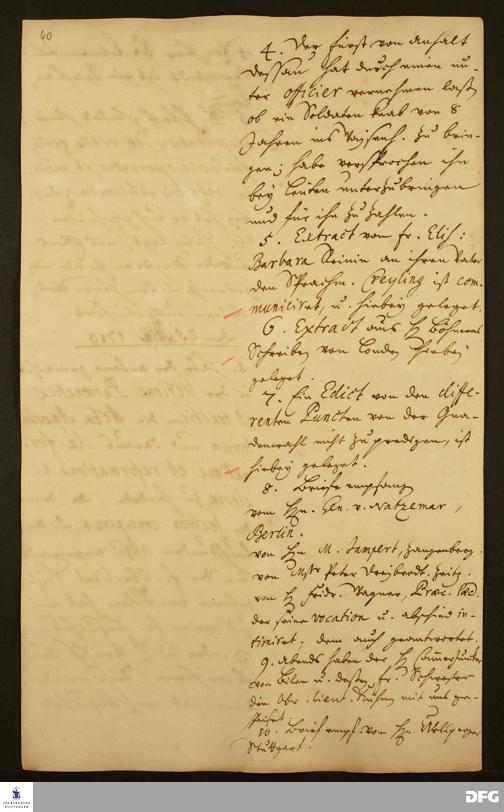 40
4. Der Fürst von Anhalt
Dessau hat durch einen un-
ter officier vernehmen lassen
ob ein Soldaten Knab von 8
Jahren ins Waysenh. zu brin-
gen; habe versprochen ihn
bey Leuten unterzubringen
und für ihn zu zahlen.
5. Extract von Fr. Elis:
Barbara an ihren Vater
den Sprachm. Peyling ist com-
municiret, u. hiebey geleget.
6. Extract aus H Böhmens
Schreiben von London hiebey
geleget.
7. Ein Edict von den diffe-
renten Puncten von der Gna-
denwahl nicht zu predigen, ist
hiebey geleget.
8. Briefe empfang
vom Hn. Gen. v. Natzemar,
Berlin.
von Hn M. Lampert,
von Mstr Peter Zeitz.
von H Fridr. Wagner, Præc. Pæd.
der seine vocation u. abschied in-
timiret. dem auch geantwortet.
9. abends haben der H Cammerjuncker
von Bilau u. dessen Fr. Schwester
die Obr. Lieut. mit uns ge-
speiset.
10. Brief empf. vom Hn.
Stuttgart.
FRANCKESCHE STIFTUNGEN
DFG